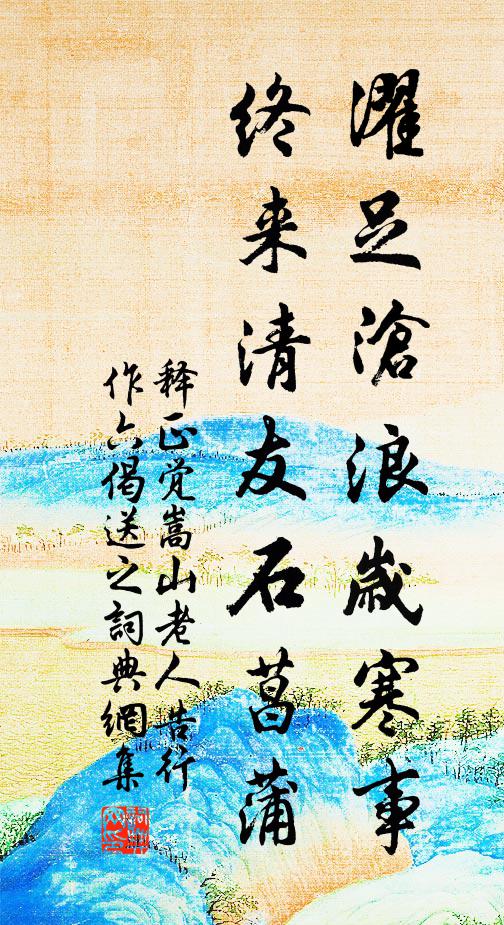 濯足滄浪歳寒事
终来清友石菖蒲
释正觉嵩山老人告行
作六偈送之詞典網集